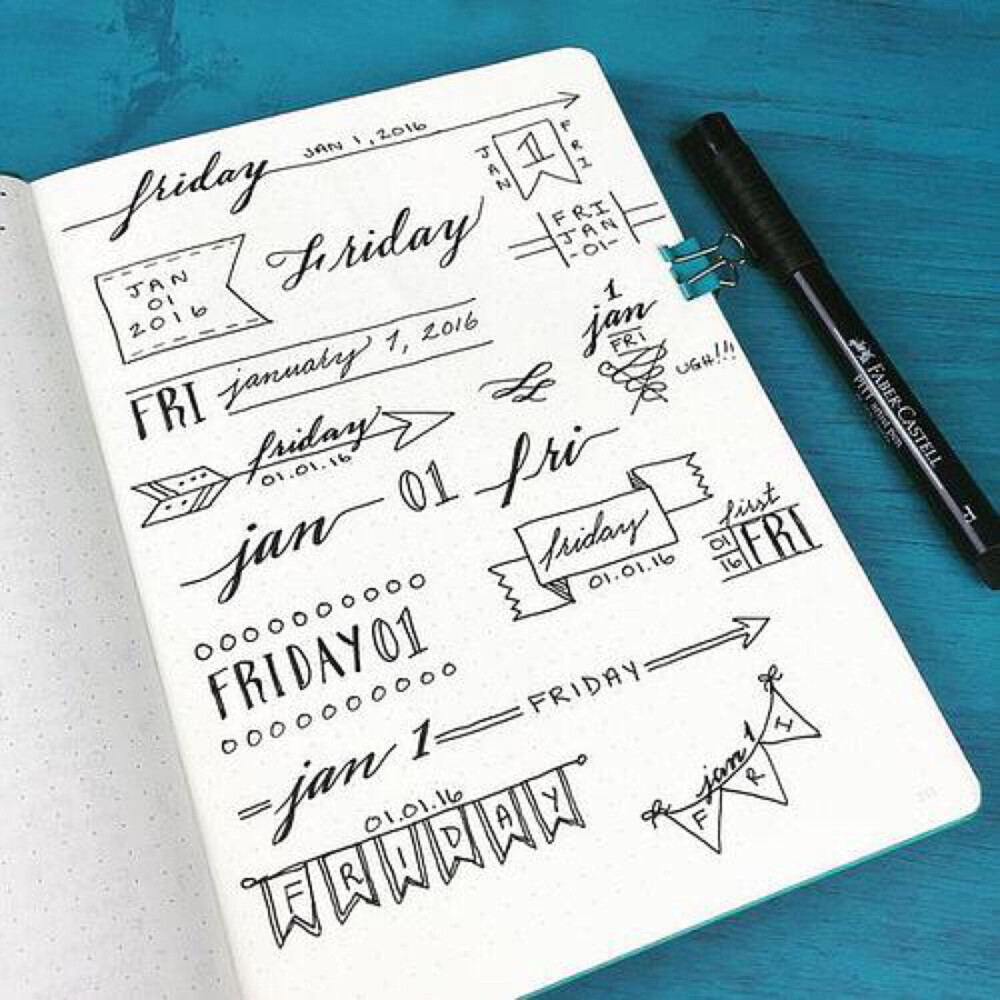 friday JAN 1, 2016
JAN 1 FRI
JAN
01
2016
Friday
FRI
JAN
-01-
FRI january 1, 2016
1
jan
FRI
UGH!!!
friday
01.01.16
jan 01 fri
friday
01.01.16
first
01
16
FRI
FRIDAY 01
jan 1 FRIDAY
01.01.16
FRIDAY
jan 1
FRI
FABER-CASTELL
PITT artist pen
F